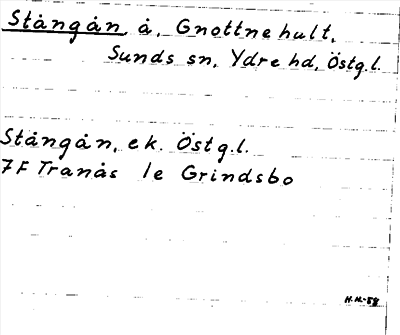 Stångån, å, Gnottnehult,
Sunds sn, Ydre hd, Östg.l.
Stångån, ek. Östg.l.
7F Tranås 1e Grindsbo
H.H.-58